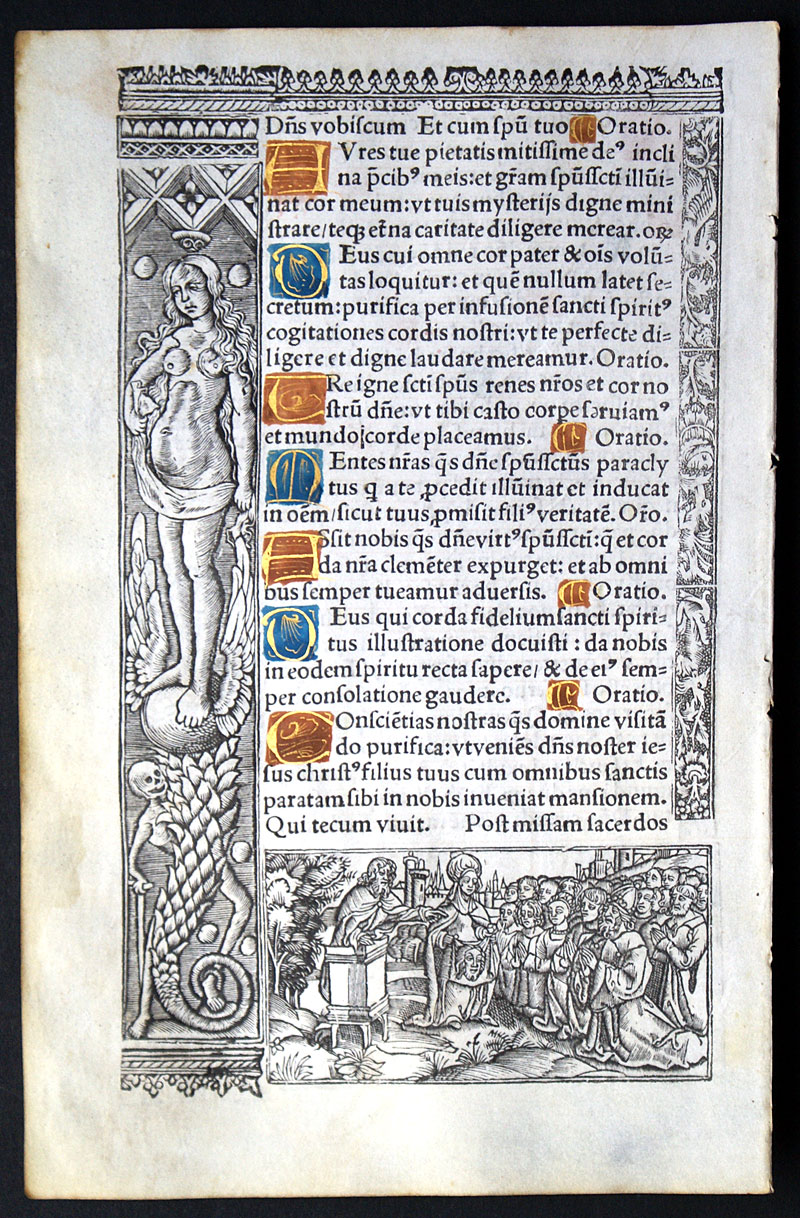 Dñs vobiscum Et cum spũ tuo Oratio.
AVres tue pietatis mitissime deꝰ incli
na p̃cibꝰ meis: et gr̃am spũssctĩ illũi=
nat cor meum: vt tuis mysterijs digne mini
strare/teqꝫ et̃na caritate diligere merear. orꝛ̃
DEus cui omne cor pater & oĩs volũ=
tas loquitur: et quẽ nullum latet se=
cretum: purifica per infusionẽ sancti spiritꝰ
cogitationes cordis nostri: vt te perfecte di=
ligere et digne laudare mereamur. Oratio.
CRe igne scti spũs renes nr̃os et cor no
strũ dñe: vt tibi casto corꝑe seruiamꝰ
et mundo corde placeamus. Oratio.
MEntes nr̃as q̃s dñe spũssctũs paracly
tus q a te ꝓcedit illũinat et inducat
in oẽm/sicut tuus ꝓmisit filiꝰ veritatẽ. Or̃o.
ASsit nobis q̃s dñe virtꝰ spũssctĩ: q̃ et cor
da nr̃a clemẽter expurget: et ab omni
bus semper tueamur aduersis. Oratio.
DEus qui corda fidelium sancti spiri=
tus illustratione docuisti: da nobis
in eodem spiritu recta sapere/ & de eiꝰ sem=
per consolatione gaudere. Oratio.
COnsciẽtias nostras q̃s domine visitã
do purifica: vt veniẽs dñs noster ie=
sus christꝰ filius tuus cum omnibus sanctis
paratam sibi in nobis inueniat mansionem.
Qui tecum viuit. Post missam sacerdos